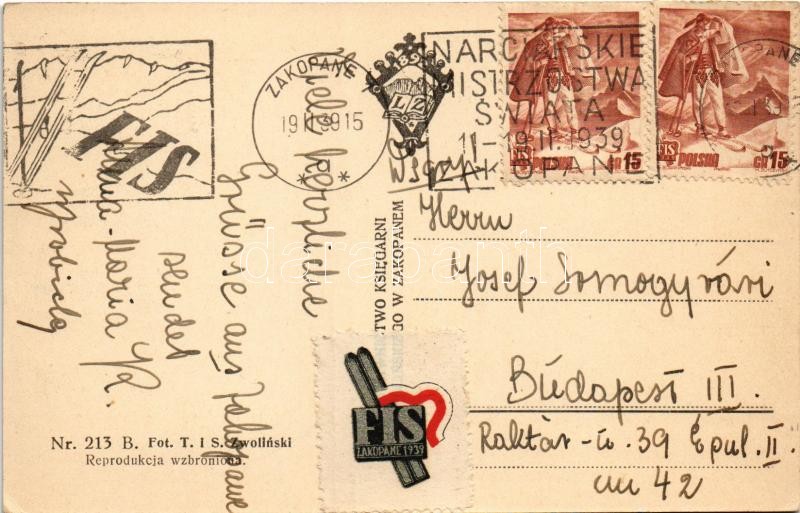 FIS
ZAKOPANE
19 II 39 15
189
LZ
NARCIARSKIE
MISTRZOSTWA
ŚWIATA
11-19.II.1939
ZAKOPANE
FIS POLSKA GR 15
GR 15
Viele herzliche
Grüsse aus Zakopane
sendet
Maria
Węgry
Herrn
Josef Somogyvári
Budapest III.
Raktár-u. 39 Epul. II.
42
TWO KSIĘGARNI
GO W ZAKOPANEM
FIS
ZAKOPANE 1939
Nr. 213 B. Fot. T. i S. Zwoliński
Reprodukcja wzbroniona.
darabanth